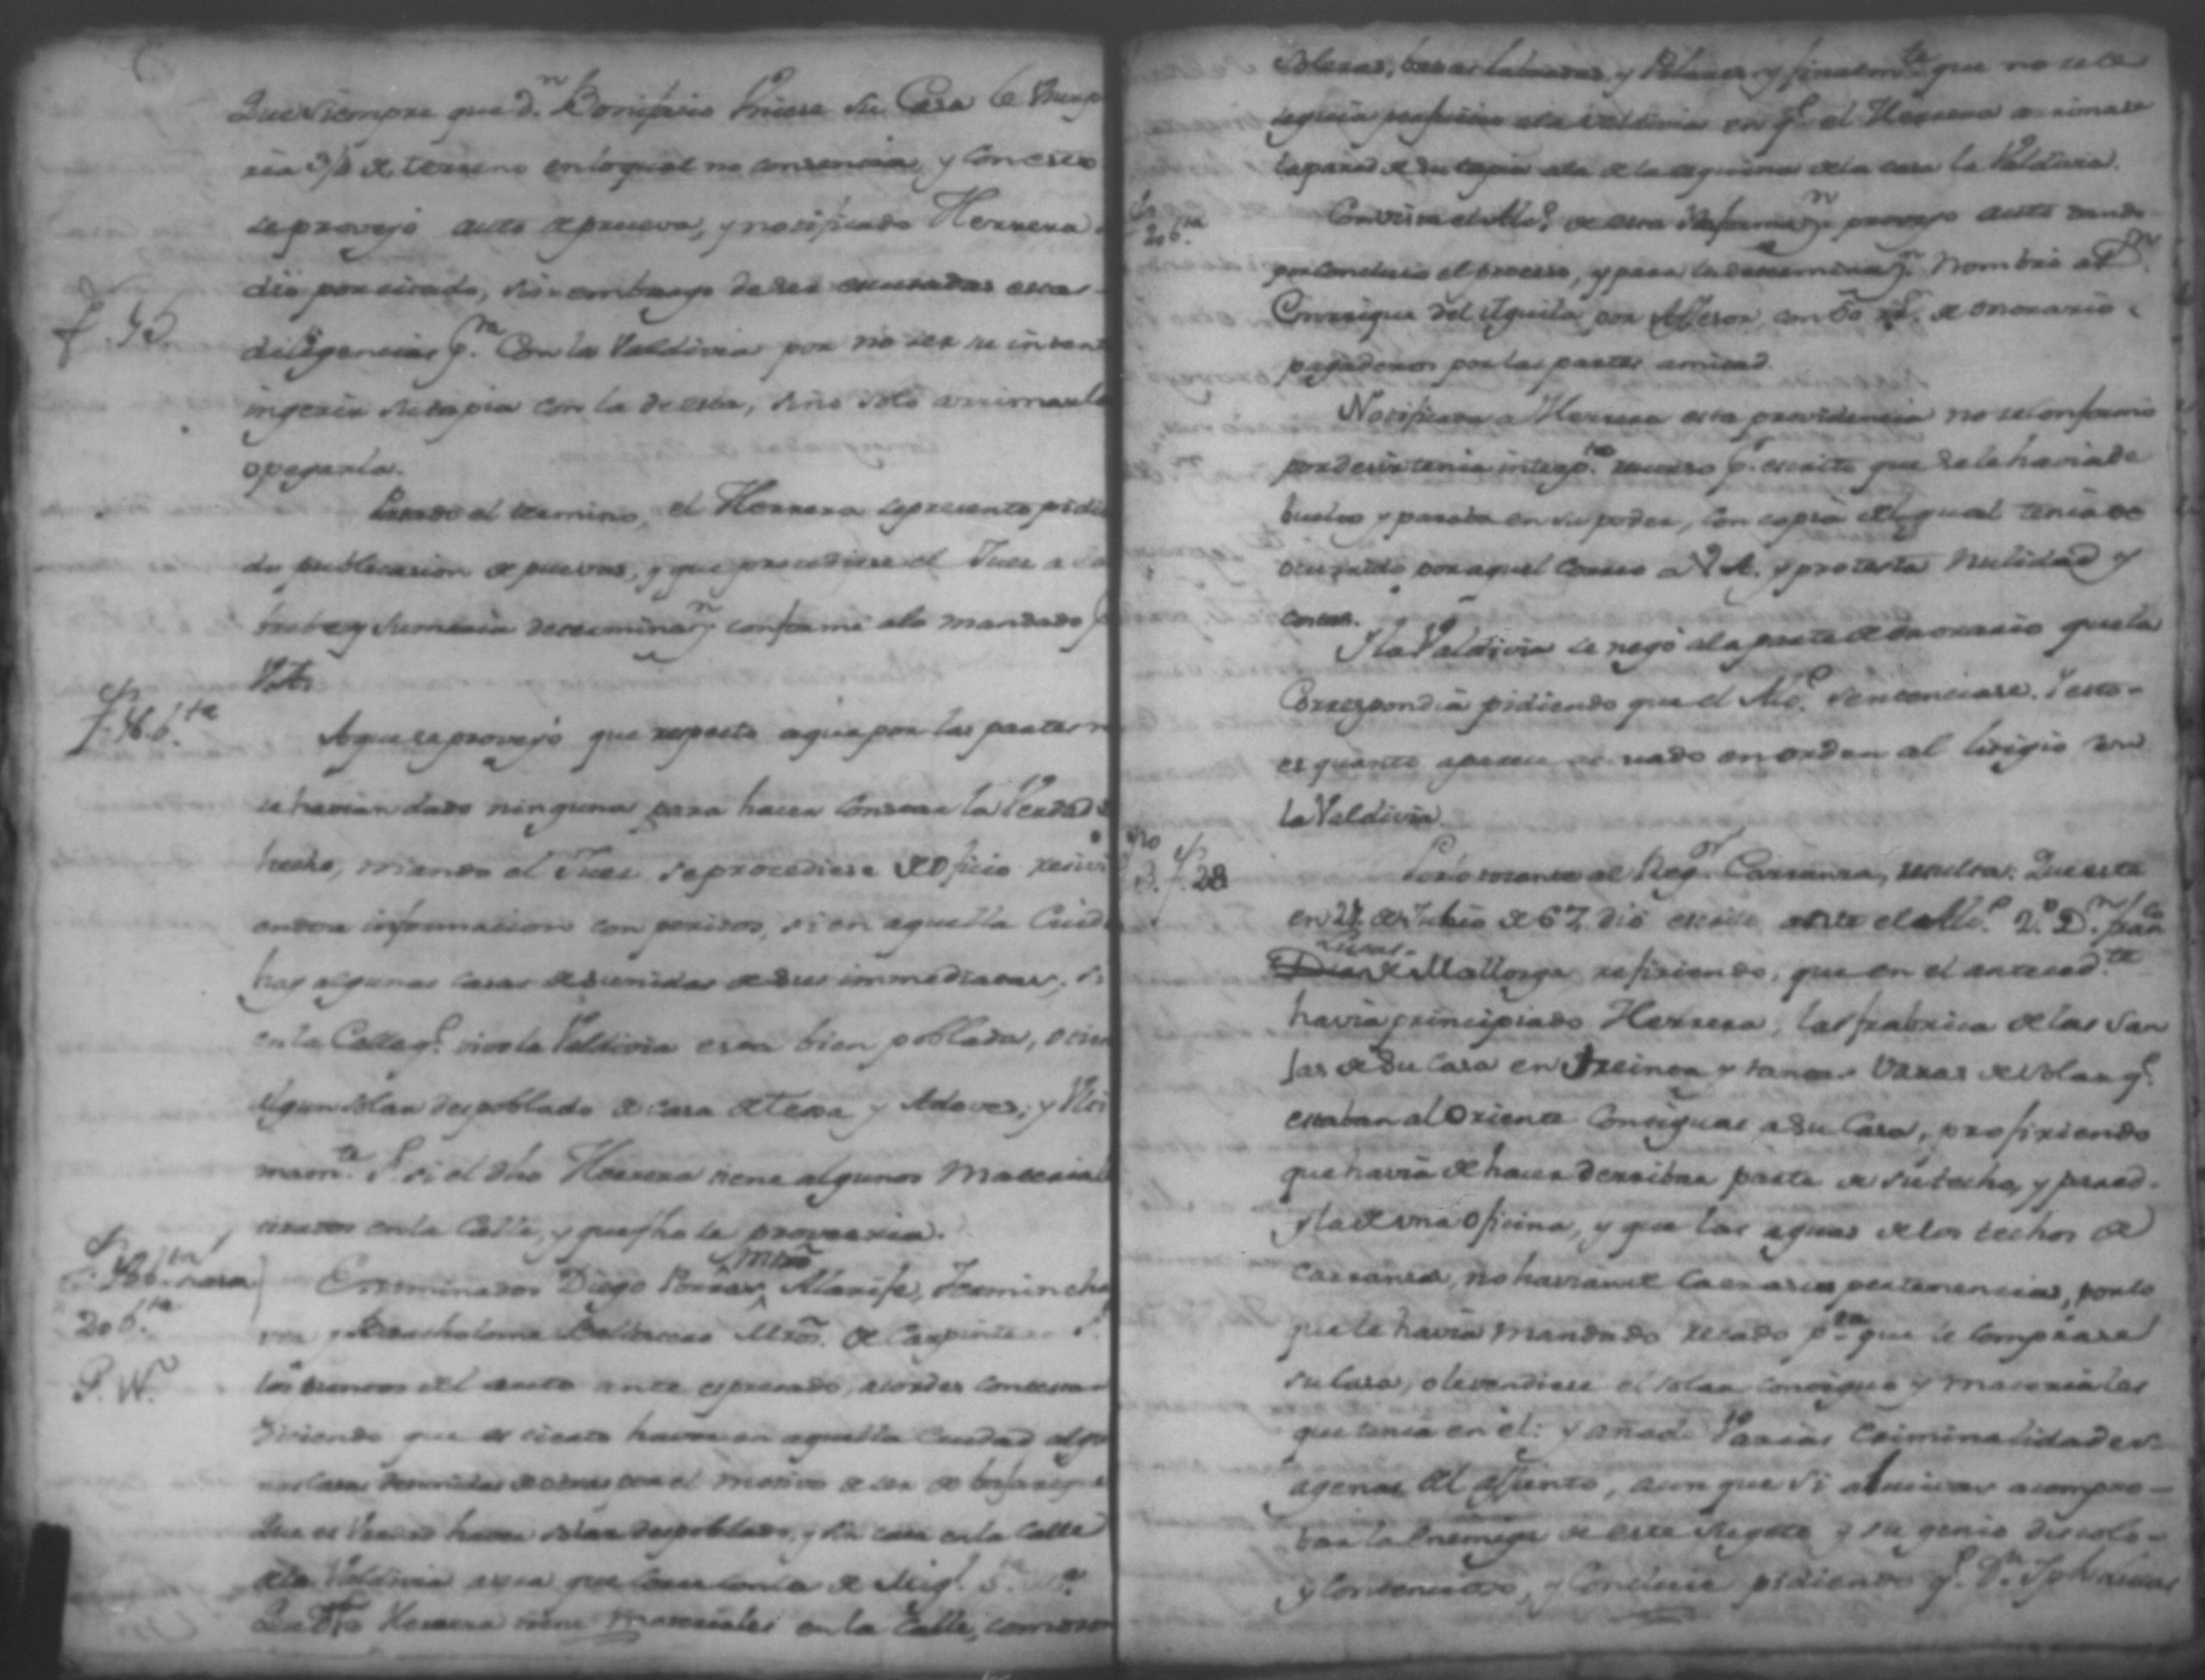 Que siempre que Dn. Bonifacio hiciese su Casa le
ria 3/4 de terreno en lo qual no consencia y con esto
se proveyó auto aprueva, y notificado Herrera
f. 45
dió por citado, sin embargo de ser escusadas esas
diligencias pra. Con la Valdivia por no ser su inten
ingerir su tapia con la de esta, sino solo arrimarla
o pegarla.
Pasado el termino, el Herrera se presento pidi
do publicacion de puevas, y que procediese el Juez a la
breve y sumaria determinan. conforme a lo mandado
V.A.
f. 46. bta
A que se proveyó que respecto a que por las partes n
se havian dado ninguna para hacer constar la Verdad
hecho, mando el Juez se procediese de Oficio
informacion con peritos, si en aquella Ciud
hay algunas casas desunidas de sus immediatas, si
en la Calle qe. vive la Valdivia esta bien poblada, o tien
algun solar despoblado de casa de Texa y Adoves; y Ulti
mamte. Si el dho Herrera tiene algunos Material
tirados en la Calle, y que fho se proveeria.
bta
20 bta
Examinados Diego Porras Mro Alarife, Fermin
y Bartholome Mros. de Carpintero
los terminos del auto ante espresado, acordes contestan
diciendo que es cierto haver en aquella Ciudad algu
nas Casas desunidas de otras por el motivo de ser de bajareque
Que es Verdad haver solar despoblado, y sin casa en la Calle
de la Valdivia que con la de Migl.
Que dho Herrera tiene materiales en la Calle, como son
Soleras, basas labradas, y Pilares y finalmte. que no se le
seguia perjuicio a la Valdivia en qe. el Herrera arrimase
la pared de su tapia a la de la esquina de la casa la Valdivia.
f. 20 bta
Con vista el Alce. de esta Informan. proveyo auto dando
por concluso el proceso, y para la determinan. Nombró a Dn.
Enrrique del Aguila por Assesor con 50 ps. de onorario
pagaderos por las partes amitad.
Notificada a Herrera esta providencia no se conformo
por decir tenia interpto. recurso pr. escrito que se le havia de
buelto y paraba en su poder, con copia del qual tenia
ocurrido por aquel Correo a V.A. y protesta Nulidad y
costas.
Y la Valdivia se negó a la parte de onorario que la
Correspondia pidiendo que el Alce. sentenciase. Y esto
es quanto aparece actuado en orden al litigio con
la Valdivia.
f. 28
Por lo tocante al Regor. Carranza, resulta: Que este
en 27 de Julio de 67 dió escrito ante el Alce. 2.º Dn. Franco
de Mallorga refiriendo, que en el antecedte.
havia principiado Herrera, las frabrica de las San
jas de su Casa en treinta y tantas Varas de Solar qe.
estaban al Oriente Contiguas a su Casa, profiriendo
que havia de hacer derribar parte de su techo, y pared
y la de una oficina, y que las aguas de los techos de
Carranza, no havian de Caer a sus pertenencias, por lo
que le havia mandado recado pa. que le Comprase
su Casa, o le vendiese el solar contiguo y materiales
que tenia en el: y añade Varias Criminalidades
agenas del assunto, aun que si alucivas a compro
bar la Enemiga de este Sugeto y su genio discolo
y Contencioso, y Concluie pidiendo qe. Dn. Jph